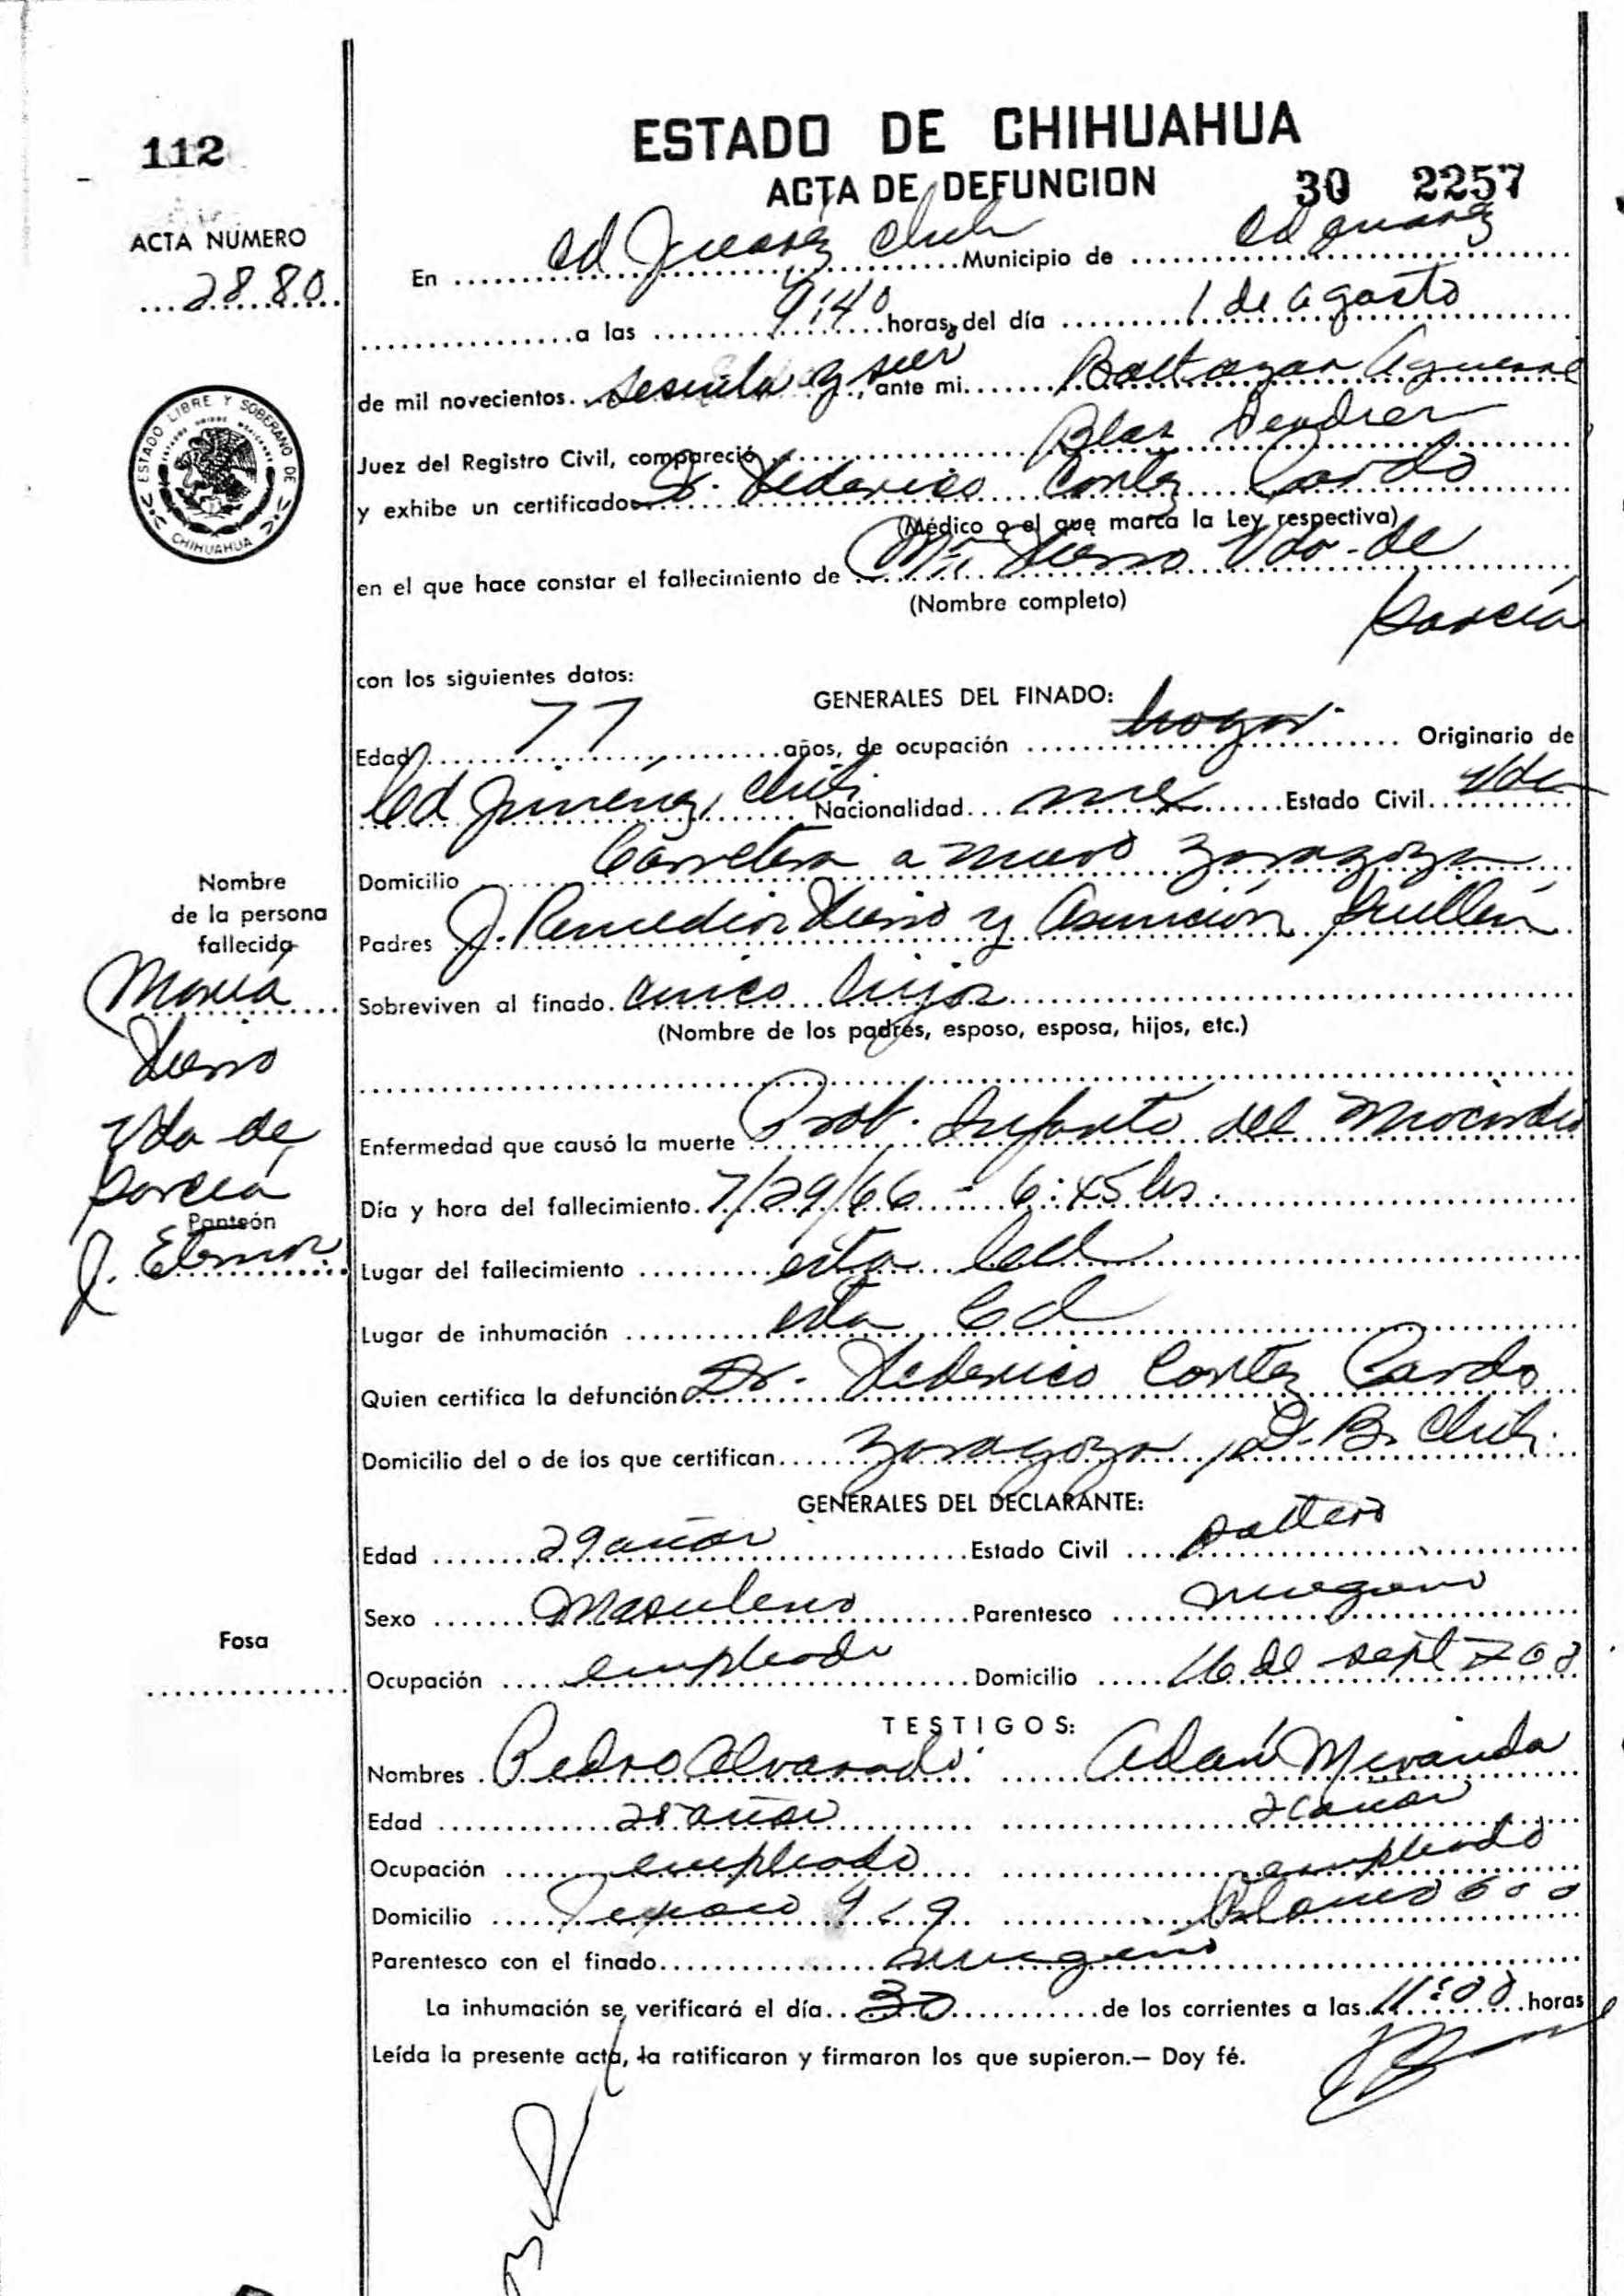 112
ESTADO DE CHIHUAHUA
ACTA DE DEFUNCION 30 2257
ACTA NUMERO
2880
En Cd Juarez Chih Municipio de Cd Juarez
a las 9:40 horas, del día 1 de agosto
de mil novecientos sesenta y seis ante mi Baltazar Aguirre
Juez del Registro Civil, compareció Blas
y exhibe un certificado Dr. Federico Cortez Pardo
(Médico o el que marca la Ley respectiva)
en el que hace constar el fallecimiento de Ma. Fierro Vda. de
(Nombre completo)
García
con los siguientes datos:
GENERALES DEL FINADO:
Edad 77 años, de ocupación hogar Originario de
Cd Jiménez, Chih. Nacionalidad mex Estado Civil Vda
Domicilio Carretera a nuevo Zaragoza
Padres J. Remedios Fierro y Asunción Guillén
Sobreviven al finado. cinco hijos
(Nombre de los padres, esposo, esposa, hijos, etc.)
Enfermedad que causó la muerte Prob. Infarto del Miocardio
Día y hora del fallecimiento. 7/29/66 - 6:45 hs.
Lugar del fallecimiento esta Cd
Lugar de inhumación esta Cd
Quien certifica la defunción Dr. Federico Cortez Pardo
Domicilio del o de los que certifican Zaragoza, D. B. Chih.
GENERALES DEL DECLARANTE:
Edad 29 años Estado Civil soltero
Sexo masculino Parentesco ninguno
Ocupación empleado Domicilio 16 de sept
TESTIGOS:
Nombres Pedro Alvarado Adán Miranda
Edad 28 años años
Ocupación empleado empleado
Domicilio
Parentesco con el finado ninguno
La inhumación se verificará el día 30 de los corrientes a las 11:00 horas
Leída la presente acta, la ratificaron y firmaron los que supieron.— Doy fé.
ESTADO LIBRE Y SOBERANO DE CHIHUAHUA
ESTADOS UNIDOS MEXICANOS
Nombre
de la persona
fallecida
María
Fierro
Vda de
García
Panteón
J. Eterno
Fosa